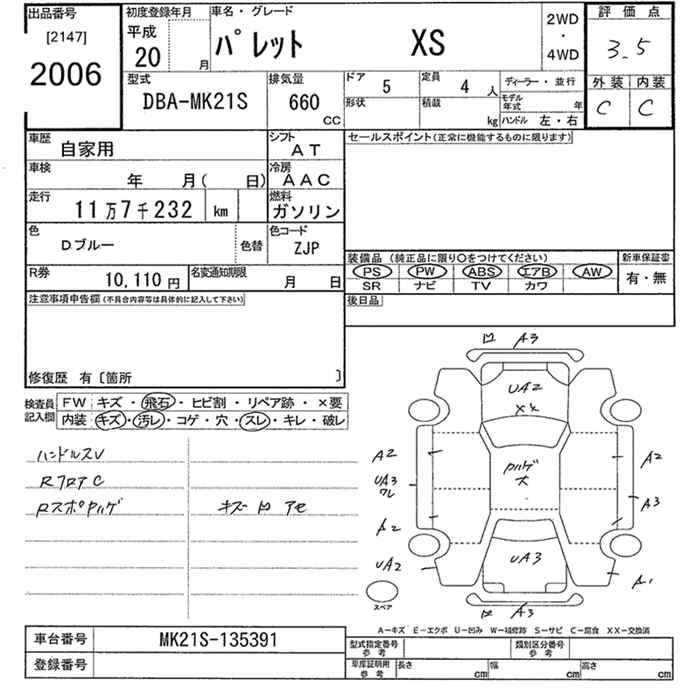 出品番号
[2147]
2006
初度登録年月
平成
20
月
車名・グレード
パレット XS
2WD
・
4WD
評価点
3.5
外装 内装
C C
型式
DBA-MK21S
排気量
660
cc
ドア
5
定員
4 人
形状
積載
kg
ディーラー・並行
モデル年式 年
ハンドル 左・右
車歴
自家用
シフト
AT
車検
年 月( 日)
冷房
AAC
走行
11万7千232 km
燃料
ガソリン
色
Dブルー
色替
色コード
ZJP
R券
10,110 円
名変通知期限
月 日
セールスポイント(正常に機能するものに限ります)
装備品 (純正品に限り○をつけてください)
PS PW ABS エアB AW
SR ナビ TV カワ
新車保証書
有・無
後日品
注意事項申告欄(不具合内容等は具体的に記入して下さい)
修復歴 有〔箇所 〕
検査員記入欄
FW キズ・飛石・ヒビ割・リペア跡・×要
内装 キズ・汚レ・コゲ・穴・スレ・キレ・破レ
ハンドルスレ
RフロアC
RスポPハゲ
キズ 凹 アセ
凹 A3
UA2
XX
A2
UA3
ワレ
A2
UA2
Pハゲ
大
A2
A3
A1
UA3
凹 A3
スペア
A-キズ E-エクボ U-凹み W-補修跡 S-サビ C-腐食 XX-交換済
車台番号
MK21S-135391
登録番号
型式指定番号 参考
類別区分番号 参考
車庫証明用 参考
長さ cm
幅 cm
高さ cm